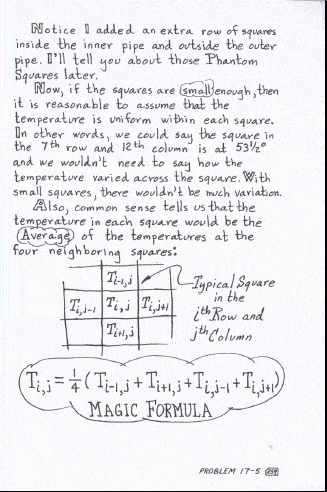 Notice I added an extra row of squares
inside the inner pipe and outside the outer
pipe. I'll tell you about those Phantom
Squares later.
Now, if the squares are small enough, then
it is reasonable to assume that the
temperature is uniform within each square.
In other words, we could say the square in
the 7th row and 12th column is at 53½°
and we wouldn't need to say how the
temperature varied across the square. With
small squares, there wouldn't be much variation.
Also, common sense tells us that the
temperature in each square would be the
Average of the temperatures at the
four neighboring squares:
Ti-1,j
Ti,j-1 Ti,j Ti,j+1
Ti+1,j
Typical Square
in the
ith Row and
jth Column
Ti,j = 1/4 ( Ti-1,j + Ti+1,j + Ti,j-1 + Ti,j+1 )
MAGIC FORMULA
PROBLEM 17-5